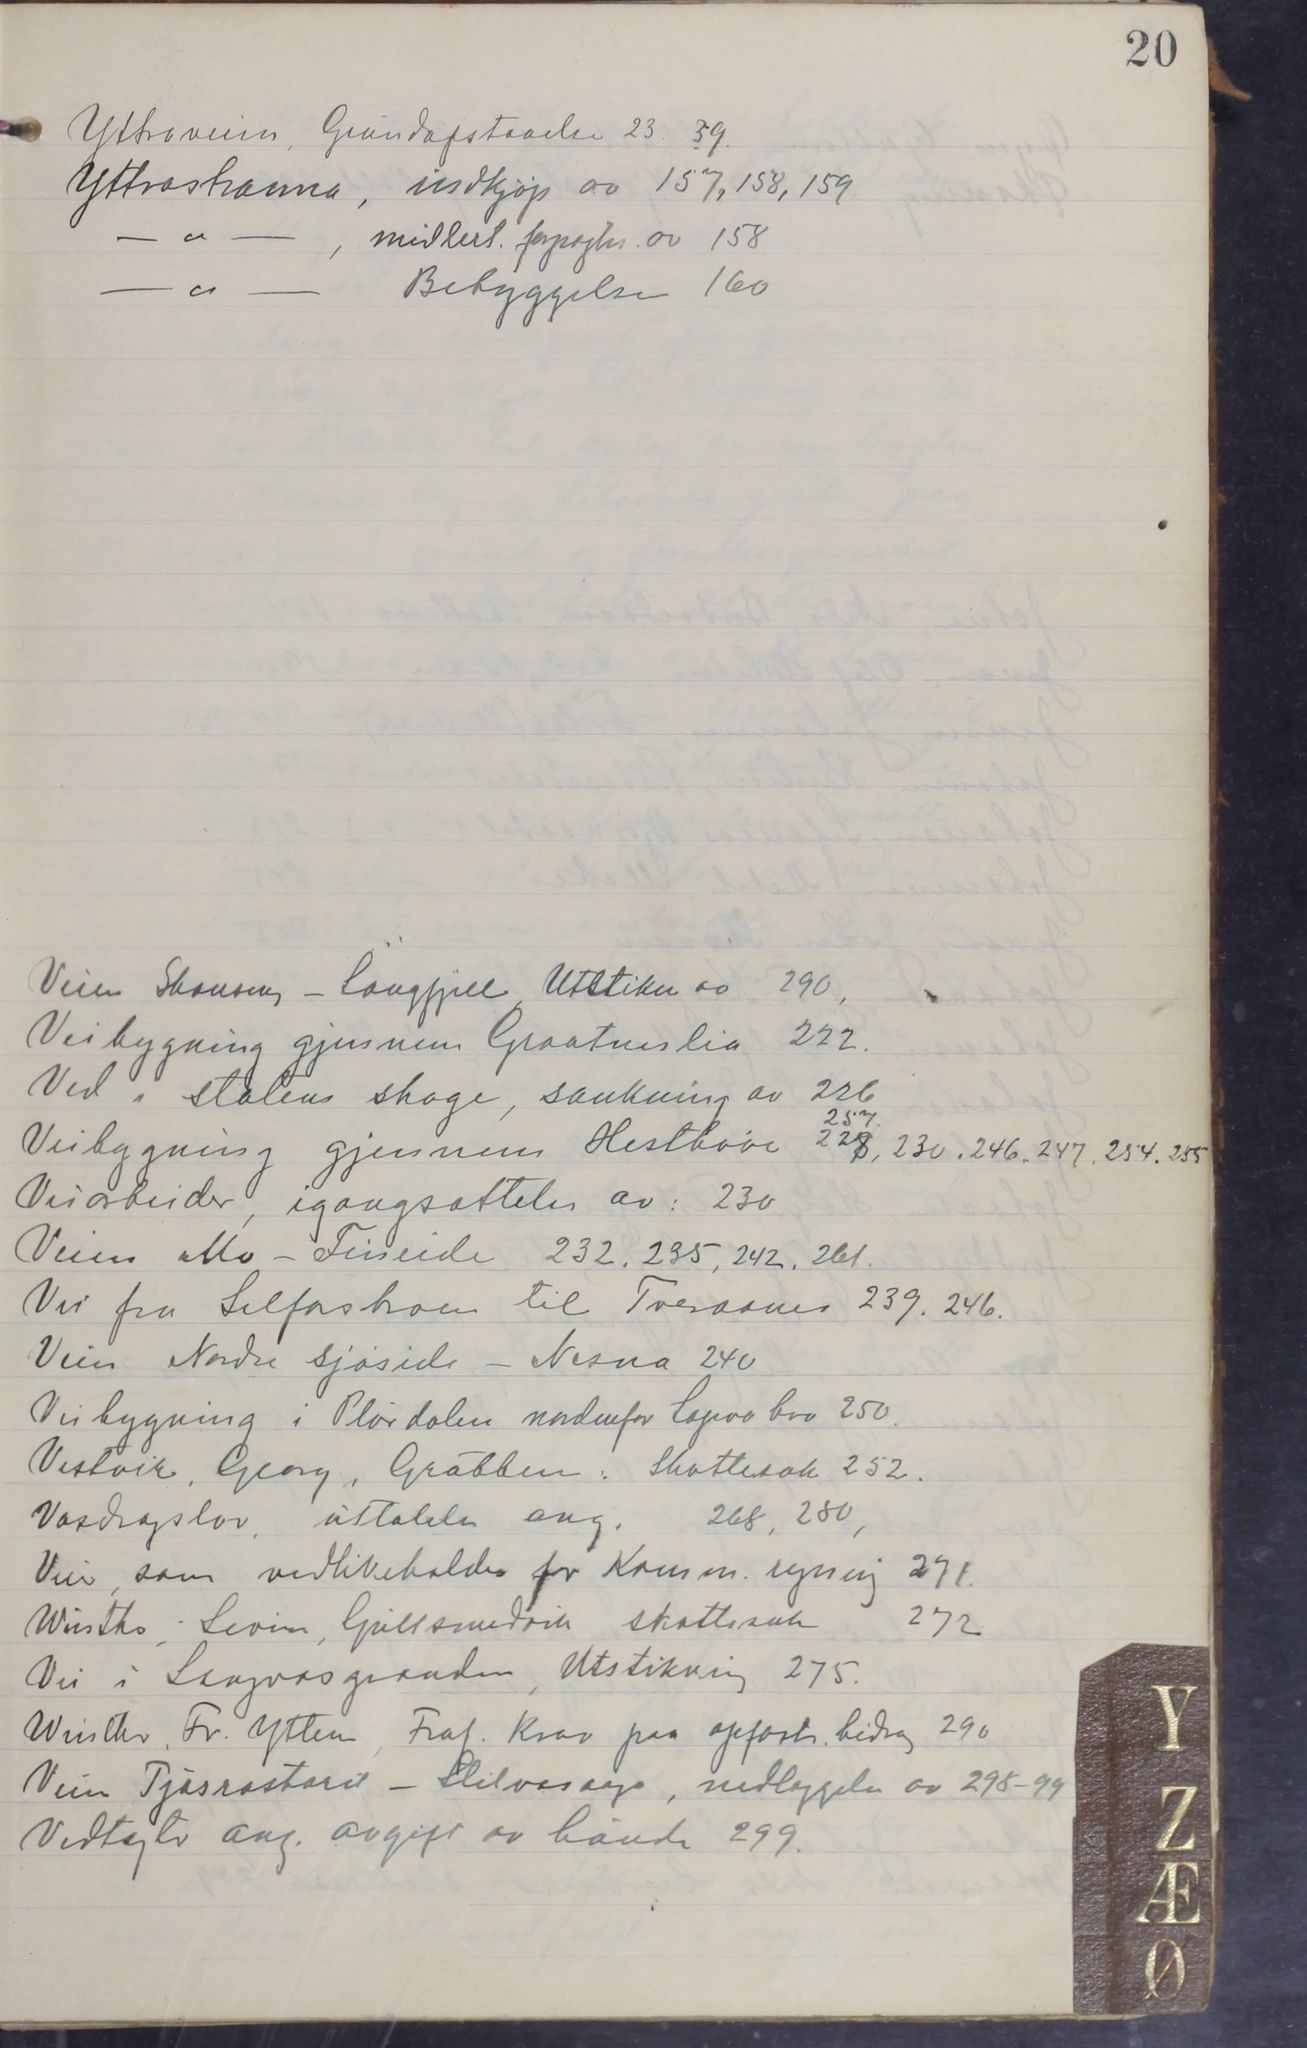 20
Yttraveien, Grundafstaaelse 23. 39.
Yttrastranna, indkjøp av 157, 158, 159
— " — , midlert. forpagtn. av 158
— " — Bebyggelse 160
Veien Skonseng – Langfjell, Utstikn av 290,
Veibygning gjennem Graatneslia 222.
Ved i statens skoge, sankning av 226
257.
Veibygning gjennem Hesthøie 228, 230. 246. 247. 254. 255
Veiarbeider, igangsættelse av: 230
Veien Mo – Finneide 232. 235, 242. 261.
Vei fra Selforshoen til Tveraanes 239. 246.
Veien Nordre sjøside – Nesna 240
Veibygning i Pluradalen nordenfor bro 250.
Vestvik, Georg, Grubben: Skattesak 252.
Vasdragslov, uttalelse ang. 268, 280,
Veie, som vedlikeholdes for Komm. regning 271.
Winther, Levin, Gullsmedvik skattesak 272
Vei i Langvasgranden, Utstikning 275.
Winther, Fr. Ytteren, Fraf. Krav paa opfostr. bidrag 290
Veien – Stilvasaaga, nedlæggelse av 298-99
Vedtægter ang. avgift av hunde 299.
Y
Z
Æ
Ø